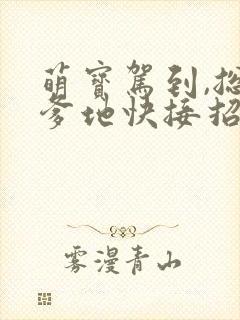 萌寶駕到,總
爹地快接招
雾漫青山